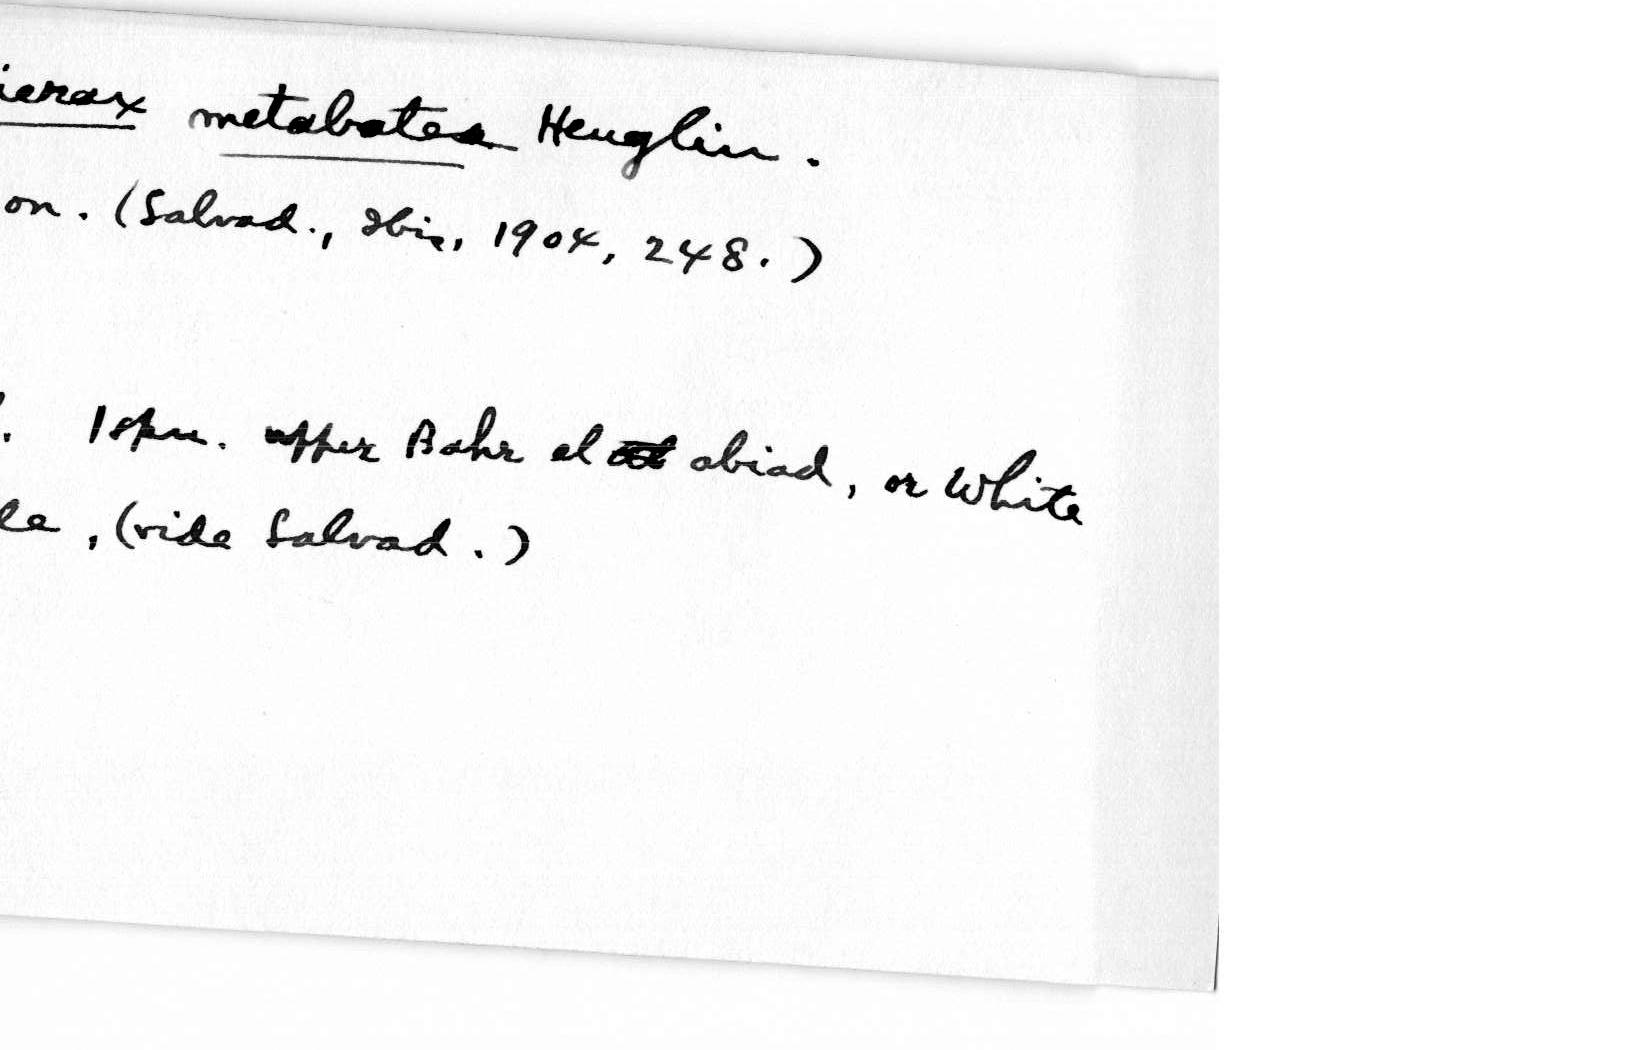 ierax metabates Heuglin.
on. (Salvad., Ibis, 1904, 248.)
. 1 spm. upper Bahr el abiad, or White
le, (vide Salvad.)